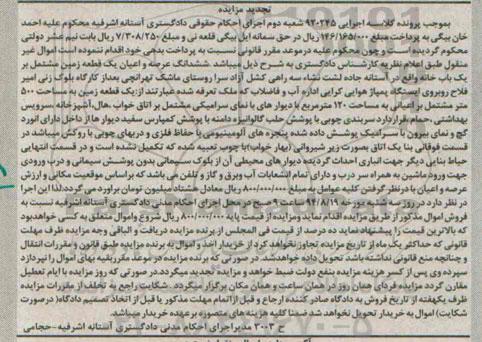 تجدید مزایده
بموجب پرونده کلاسه اجرایی ۹۲۰۲۴۵ شعبه دوم اجرای احکام حقوقی دادگستری آستانه اشرفیه محکوم علیه احمد
خان بیگی به پرداخت مبلغ ۱۴۶/۱۶۵/۰۰۰ ریال در حق سمانه ایل بیگی قلعه نی و مبلغ ۷/۳۰۸/۲۵۰ ریال بابت نیم عشر دولتی
محکوم گردیده است و چون محکوم علیه در موعد مقرر قانونی نسبت به پرداخت بدهی خود اقدام ننموده است اموال غیر
منقول طبق اعلام نظریه کارشناس دادگستری به شرح ذیل میباشد ششدانگ عرصه و اعیان یک قطعه زمین مشتمل بر
یک باب خانه واقع در آستانه جاده لشت نشاء سه راهی کشل آزاد سرا روستای ماشک تهرانچی بعداز کارگاه بلوک زنی امیر
فلاح روبروی ایستگاه پمپاژ هوایی کرایی اداره آب و فاضلاب که ملک تعرفه شده عبارتند از: یک قطعه زمین به مساحت ۵۰۰
متر مشتمل بر اعیانی به مساحت ۱۲۰ مترمربع با دیوار های با نمای سرامیکی مشتمل بر اتاق خواب ،هال،آشپزخانه ،سرویس
بهداشتی ،حمام،قراردارد،سربندی چوبی با پوشش حلب گالوانیزه دامنه با پوشش کمپارس سفید دیوار ها از داخل دارای اندود
گچ و نمای بیرون با سرامیک پوشش داده شده پنجره های آلومینیومی با حفاظ فلزی و دربهای چوبی با روکش میباشد در
قسمت فوقانی بنا یک اتاق بصورت زیر شیروانی (بهار خواب)با چوب تعبیه شده که تکمیل نشده است و در قسمت انتهایی
حیاط بنایی دیگر جهت انباری احداث گردیده دیوار های محیطی آن از بلوک سیمانی بدون پوشش سیمانی و درب ورودی
جهت ورود ماشین به همراه سر درب و دارای تمام انشعابات آب وبرق و گاز و تلفن می باشد که براساس موقعیت مکانی و ارزش
عرصه و اعیان با در نظر گرفتن کلیه عوامل به مبلغ ۸۰۰/۰۰۰/۰۰۰ ریال معادل هشتاد میلیون تومان براورد می گردد.لذا این اجرا
در نظر دارد در روز سه شنبه مورخه ۹۴/۸/۱۹ ساعت ۹ صبح در محل اجرای احکام مدنی دادگستری آستانه اشرفیه نسبت به
فروش اموال مذکور از طریق مزایده اقدام نماید و مزایده از قیمت پایه ۸۰۰/۰۰۰/۰۰۰ ریال شروع و اموال متعلق به کسی خواهد بود
که بالاترین قیمت را پیشنهاد نماید ده درصد از قیمت فی المجلس از برنده مزایده دریافت و الباقی وجه مزایده ظرف مهلت
قانونی که حداکثر یک ماه از تاریخ مزایده تجاوز نخواهد کرد از خریدار اخذ و اموال به برنده مزایده طبق قانون و مقررات انتقال
و چنانچه منع قانونی نداشته باشد تحویل داده خواهد شد. در صورتی که برنده مزایده در موعد مقرر بقیه بهای اموال را نپردازد
سپرده وی پس از کسر هزینه مزایده بنفع دولت ضبط خواهد و مزایده تجدید میگردد.در صورتی که روز مزایده با ایام تعطیل
مقارن گردد مزایده فردای همان روز در همان ساعت و همان مکان برگزار میگردد . شکایت راجع به تخلف از مقررات مزایده
ظرف یکهفته از تاریخ فروش به دادگاه صادر کننده ارجاع و قبل از اتمام مهلت مذکور یا قبل از اتخاذ تصمیم دادگاه( درصورت
شکایت) اموال به خریدار تحویل نخواهد شد ضمنا کلیه هزینه های متصوره بر عهده خریدار میباشد.
ح ۳۰۰۳ مدیراجرای احکام مدنی دادگستری آستانه اشرفیه-حجامی